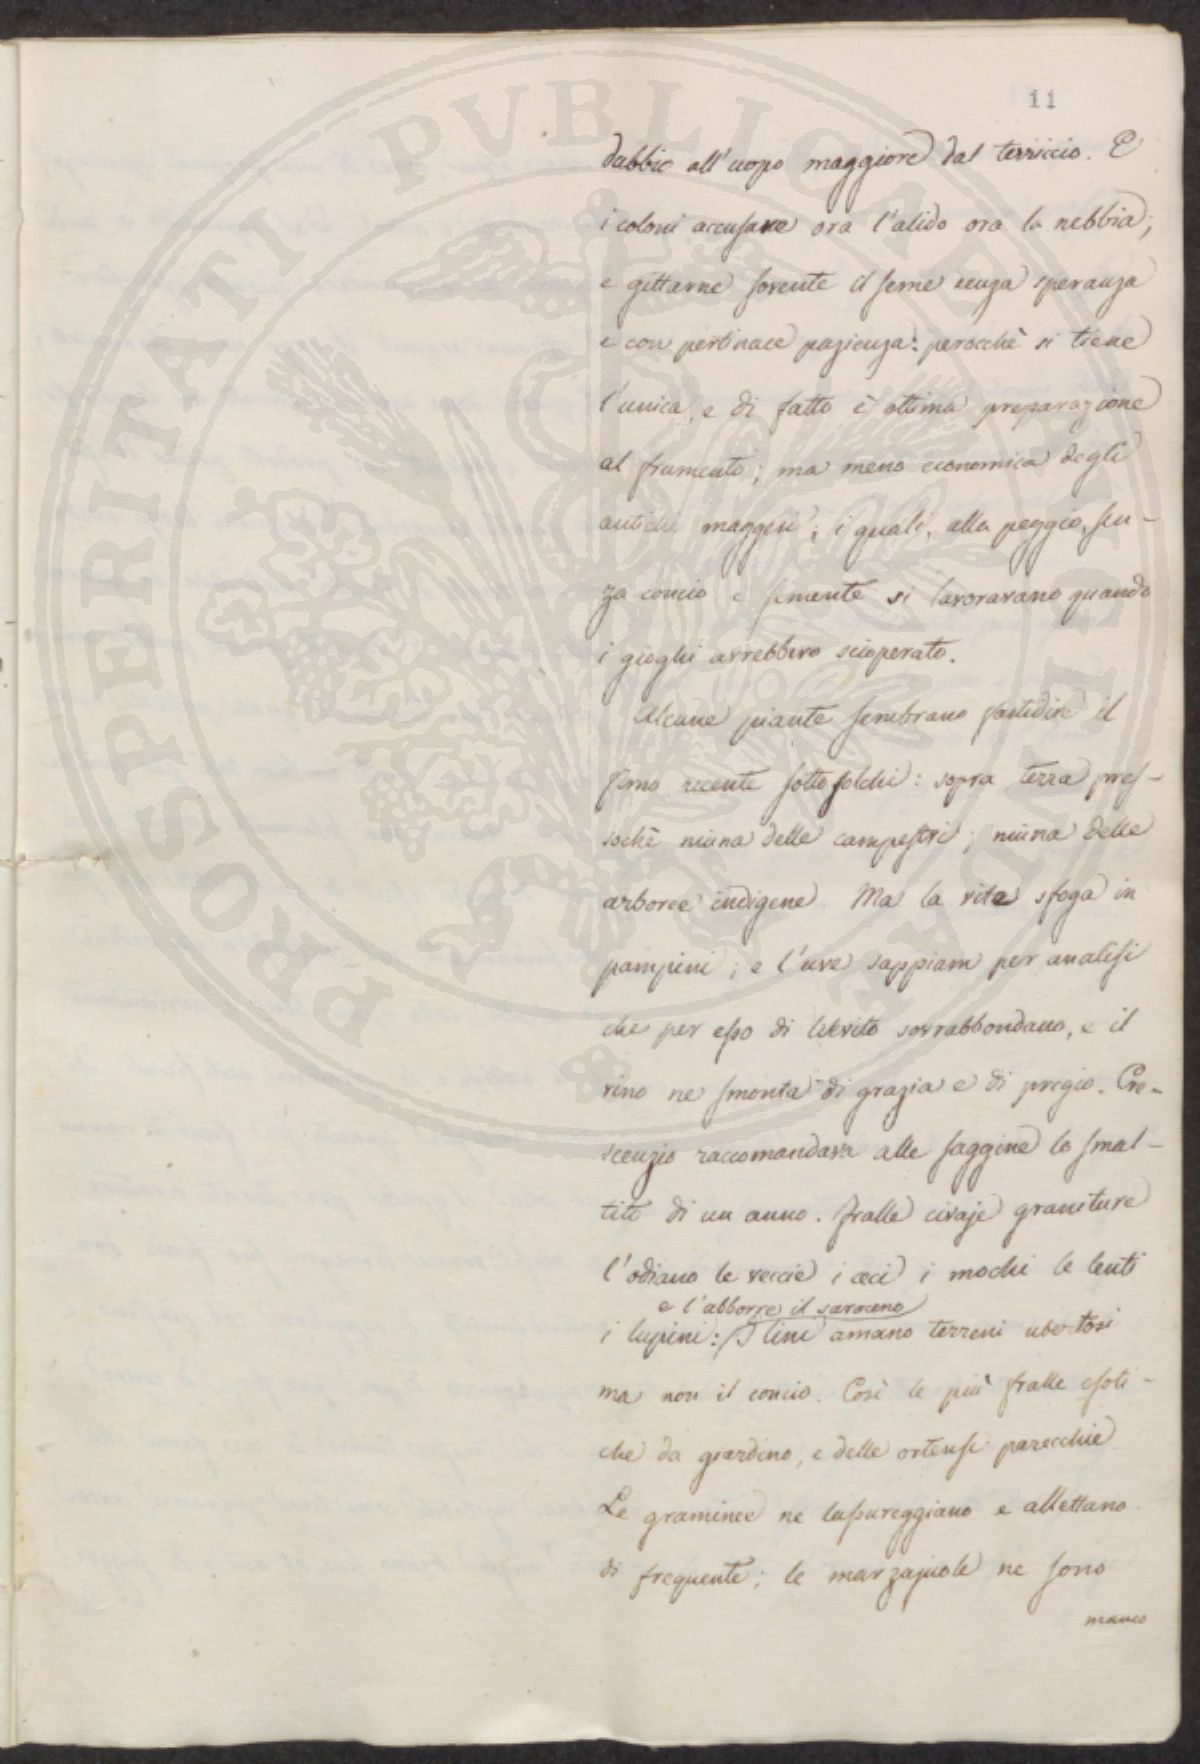 11
dubbio all'uopo maggiore dal terriccio. E
i coloni accusare ora l'alido ora la nebbia;
e gittarne sovente il seme senza speranza
e con pertinace pazienza: perocchè si tiene
l'unica, e di fatto è ottima preparazione
al frumento; ma meno economica degli
antichi maggesi; i quali, alla peggio, sen-
za concio e semente si lavoravano quando
i gioghi avrebbero scioperato.
Alcune piante sembrano fastidire il
fimo recente sotto solchi: sopra terra pres-
sochè niuna delle campestri; niuna delle
arboree indigene. Ma la vite sfoga in
pampini; e l'uve sappiam per analisi
che per esso di lievito sovrabbondano, e il
vino ne smonta di grazia e di pregio. Cre-
scenzio raccomandava alle saggine lo smal-
tito di un anno. Fralle civaje graniture
l'odiano le veccie i ceci i mochi le lenti
e l'abborre il saraceno
i lupini: I lini amano terreni ubertosi
ma non il concio. Così le più fralle esoti-
che da giardino, e delle ortensi parecchie.
Le graminee ne lussureggiano e allettano
di frequente; le marzajuole ne sono
manco
PROSPERITATI PVBLICAE AVGENDAE